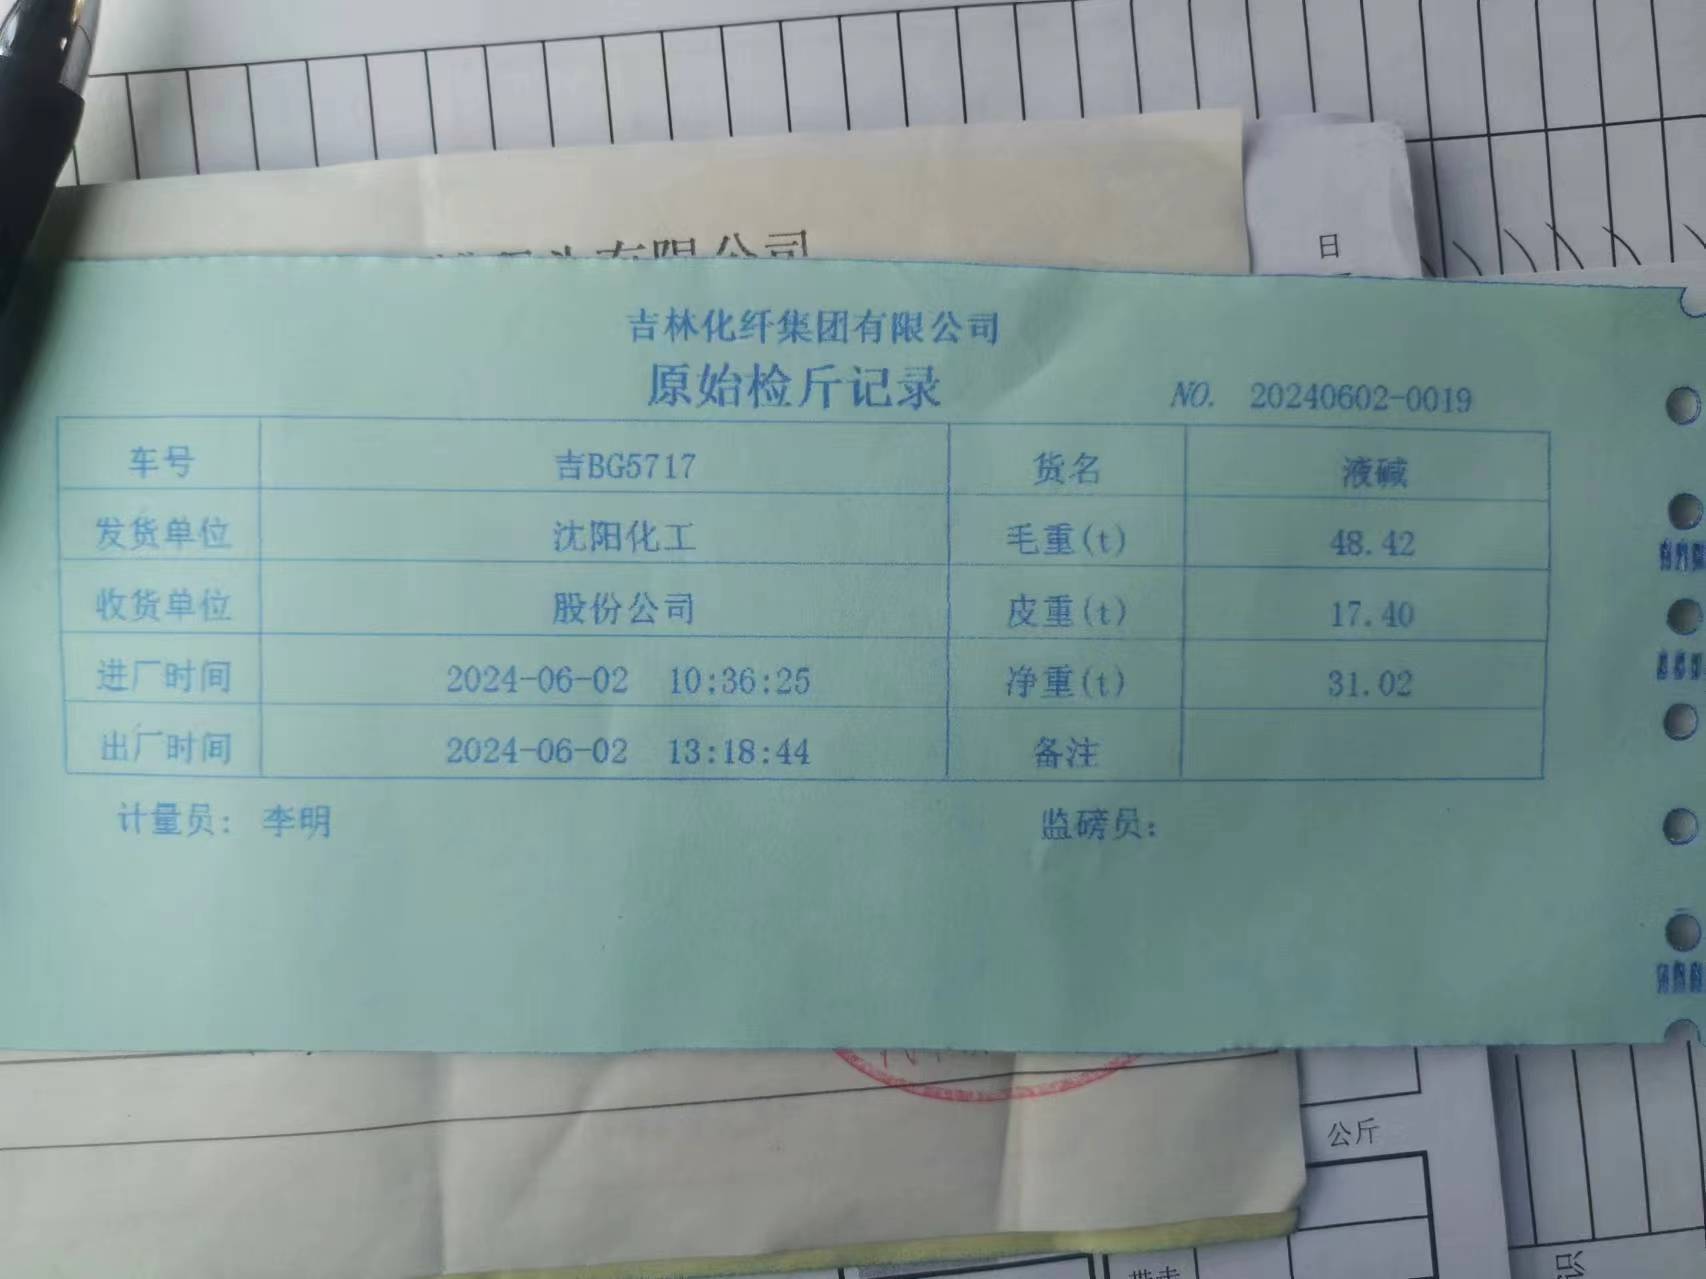 有限公司
日
吉林化纤集团有限公司
原始检斤记录
NO. 20240602-0019
车号 吉BG5717 货名 液碱
发货单位 沈阳化工 毛重(t) 48.42
收货单位 股份公司 皮重(t) 17.40
进厂时间 2024-06-02 10:36:25 净重(t) 31.02
出厂时间 2024-06-02 13:18:44 备注
计量员: 李明 监磅员:
公斤